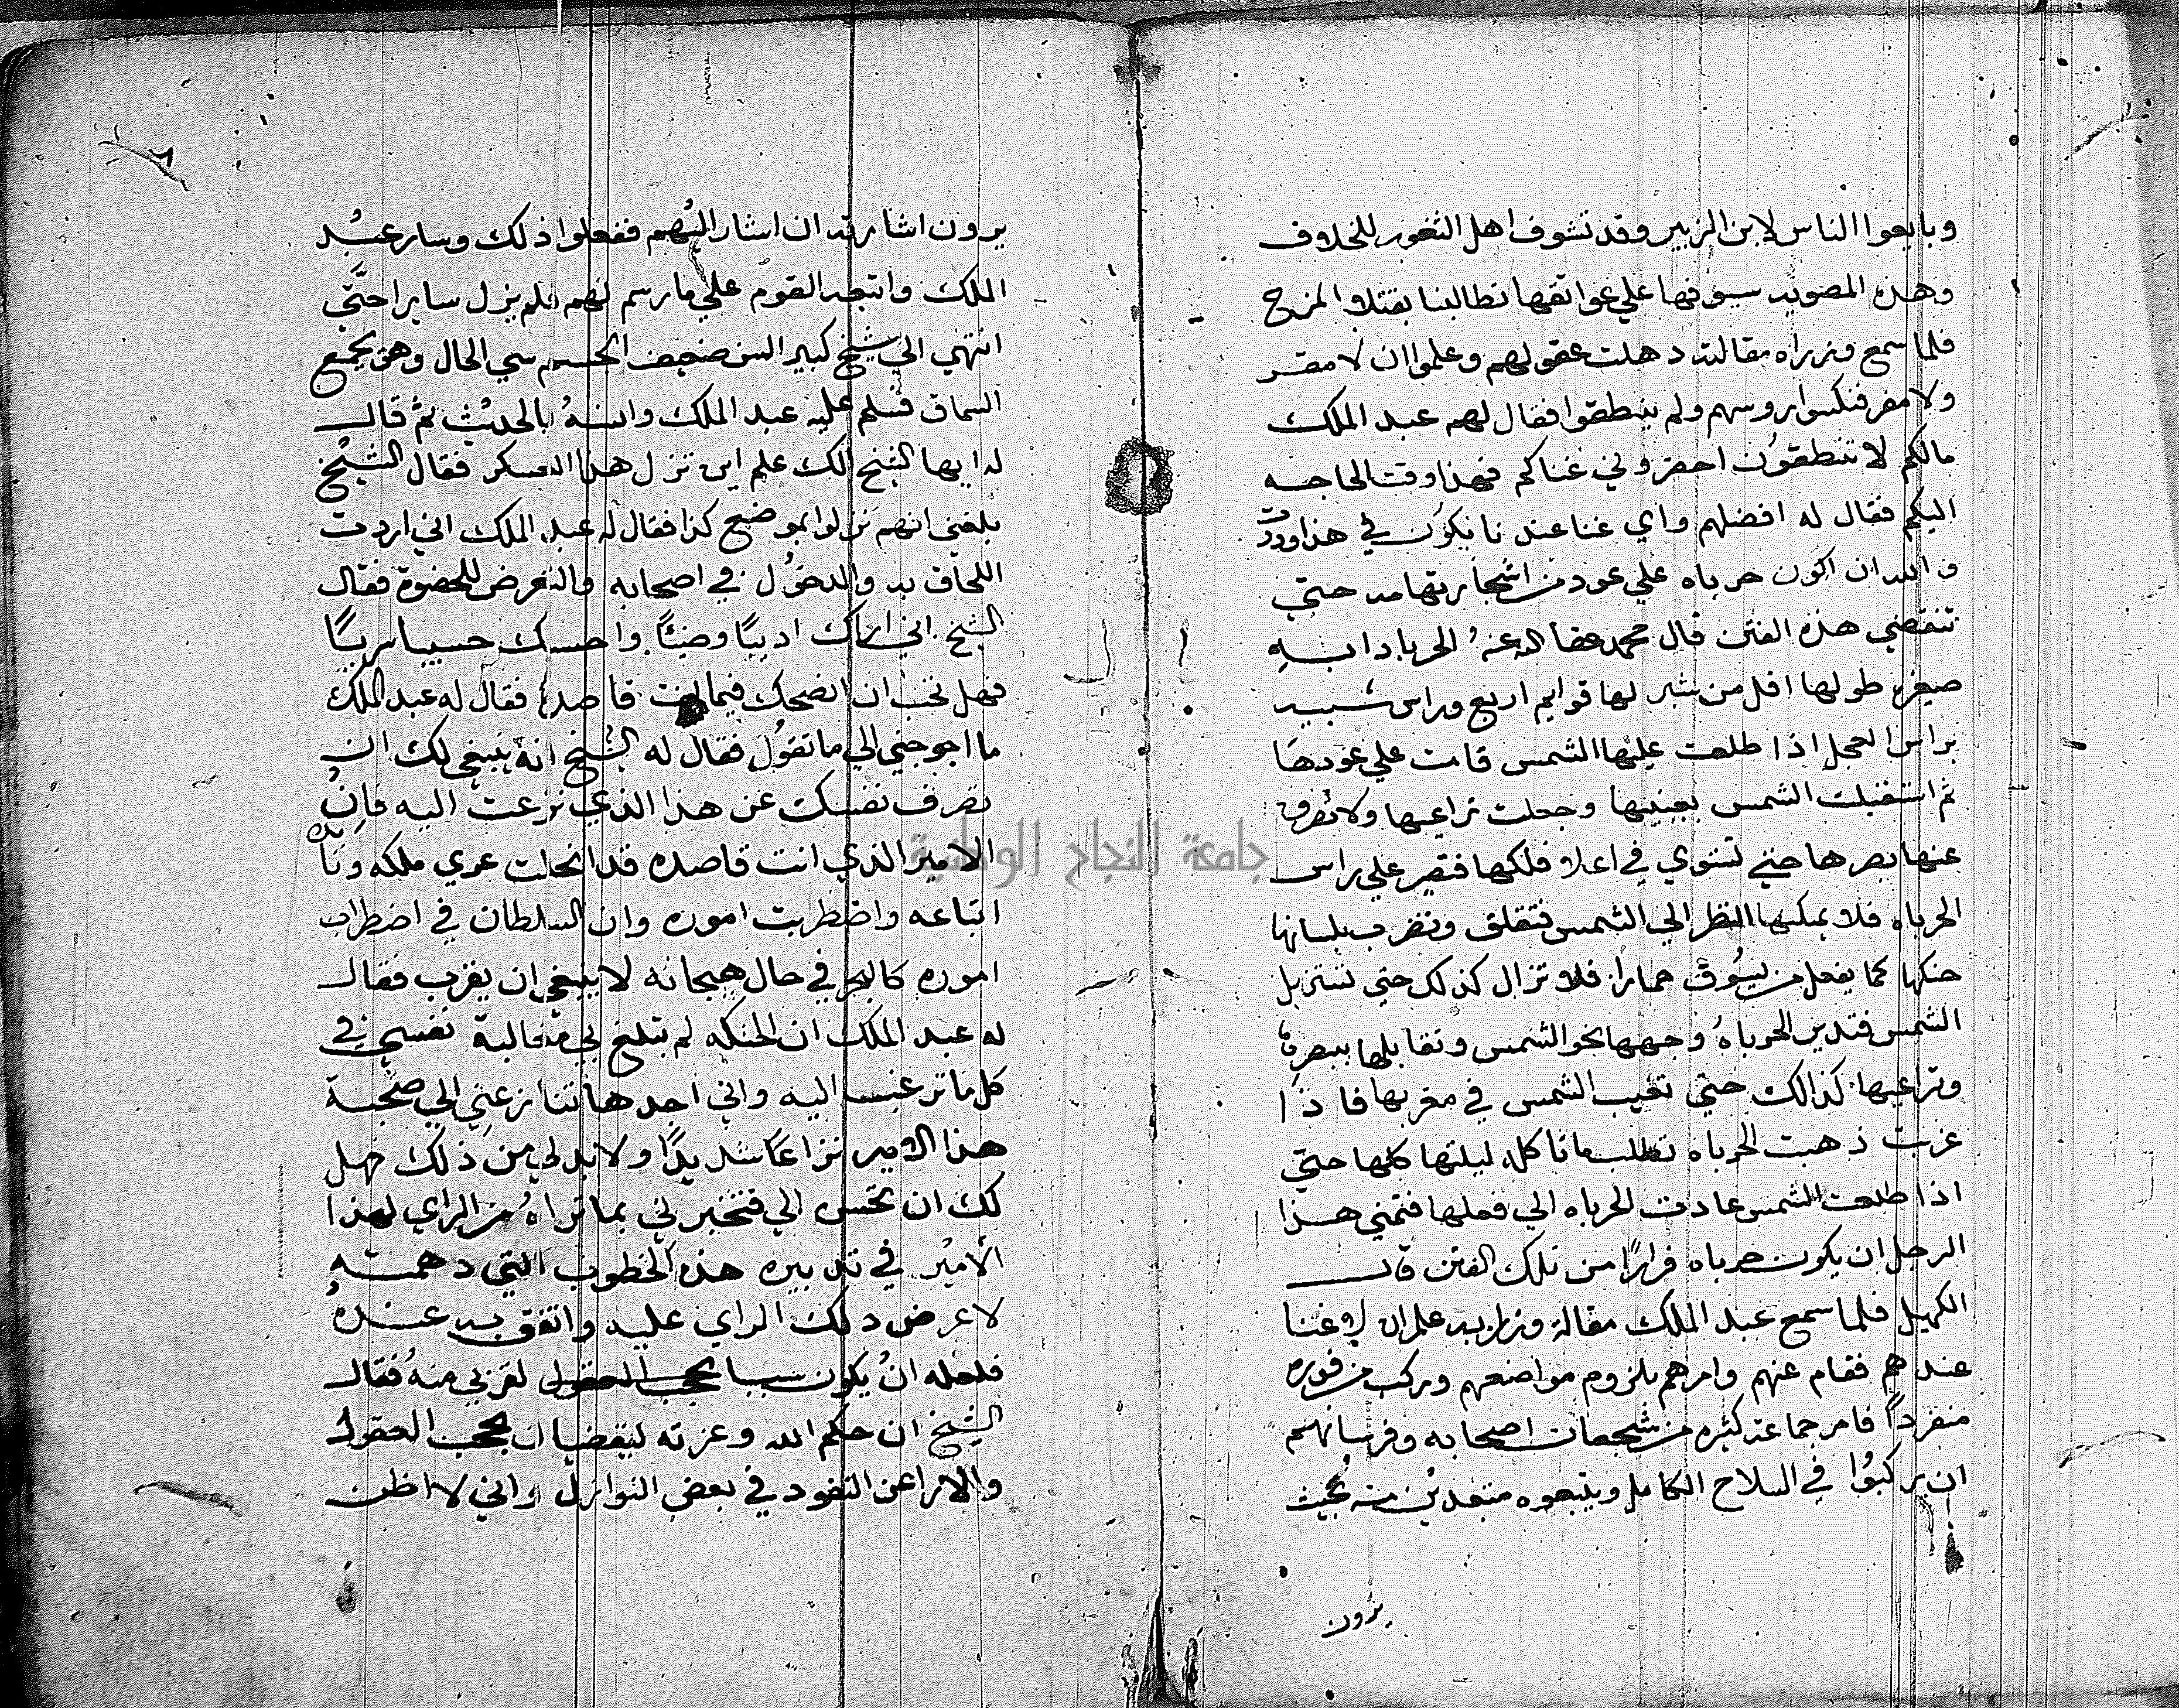 وبايعوا الناس لابن الزبير وقد تشوف اهل الثغور للخلاف
وهذه المصريه سيوفها علي عواتقها تطالبنا بقتلا المرج
فلما سمع وزراه مقالته دهلت عقولهم وعلموا ان لا مقر
ولا مفر فنكسوا روسهم ولم ينطقوا فقال لهم عبد الملك
مالكم لا تنطقون احضروني غناكم فهذا وقت الحاجه
اليكم فقال له افضلهم واي غنا عندنا يكون في هذا وددت
والله ان اكون حرباه علي عود من اشجار تهامه حتي
تنقضي هذه الفتن قال محمد عفا الله عنهُ الحربا دابه
صغيره طولها اقل من شبر لها قوايم اربع وراس شبيه
براس العجل اذا طلعت عليها الشمس قامت علي عودها
ثم استقبلت الشمس بعينيها وجعلت تراعيها ولا تصرف
عنها بصرها حتي تستوي في اعلا فلكها فتصير علي راس
الحرباه فلا يمكنها النظر الي الشمس فتقلق وتضرب بلسانها
حنكها كما يفعل من يسُوق حمارا فلا تزال كذلك حتي تستزيل
الشمس فتدير الحرباهُ وجهها نحو الشمس وتقابلها ببصرها
وتراعيها كذالك حتي تغيب الشمس في مغربها فاذا
غربت ذهبت الحرباه تطلب ما تاكله ليلتها كلها حتي
اذا طلعت الشمس عادت الحرباه الي فعلها فتمني هذا
الرجل ان يكون حرباه فرارًا من تلك الفتن قال
الكهيل فلما سمع عبد الملك مقالة وزرايه علم ان لا غنا
عندهم فقام عنهم وامرهم بلزوم مواضعهم وركب من فوره
منفردًا فامر جماعة كثيره من شجعان اصحابه وفرسانهم
ان يركبُوا في السلاح الكامل ويتبعوه متبعدين منه بحيث
يرون
يرون اشارته ان اشار اليهم ففعلوا ذلك وسار عبد
الملك واتبعه القوم علي ما رسم لهم فلم يزل سايرا حتَّي
انتهي الي شيخ كبير السن ضعيف الجسم سي الحال وهو يجمع
السماق فسلم عليه عبد الملك وانسهُ بالحديث ثم قال
له ايها الشيخ الك علم اين نزل هذا العسكر فقال الشيخ
بلغني انهم نزلوا بموضع كذا فقال له عبد الملك اني اردت
اللحاق به والدخول في اصحابه والتعرض للحضوة فقال
الشيخ اني اراك اديبًا وضيًا واحسبك حسيبا سريًا
فهل تحب ان انصحك فيما انت قاصده فقال له عبد الملك
ما احوجني الي ما تقوُل فقال له الشيخ انهُ ينبغي لك ان
تصرف نفسك عن هذا الذي نزعت اليه فان
الامير الذي انت قاصده قد انحلت عري ملكه
اتباعه واضطربت اموره وان السلطان في اضطراب
اموره كالبحر في حال هيجانه لا ينبغي ان يقرب فقال
له عبد الملك ان الحنكه لم تبلغ بي مغالبة نفسي في
كل ما ترغب اليه واني اجدها تنازعني الي صحبة
هذا الامير نزاعًا شديدًا ولا بد لي من ذلك فهل
لك ان تحسن الي فتخبرني بما تراهُ من الراي لهذا
الامير في تدبيره هذه الخطوب التي دهمته
لاعرض ذلك الراي عليه واتفق به عندهُ
فلعله ان يكون سببا لقربي منهُ فقال
الشيخ ان حكم الله وعزته ليقضيان بحجب العقول
والارا عن النفود في بعض النوازل واني لا اظن
جامعة النجاح الوطنية